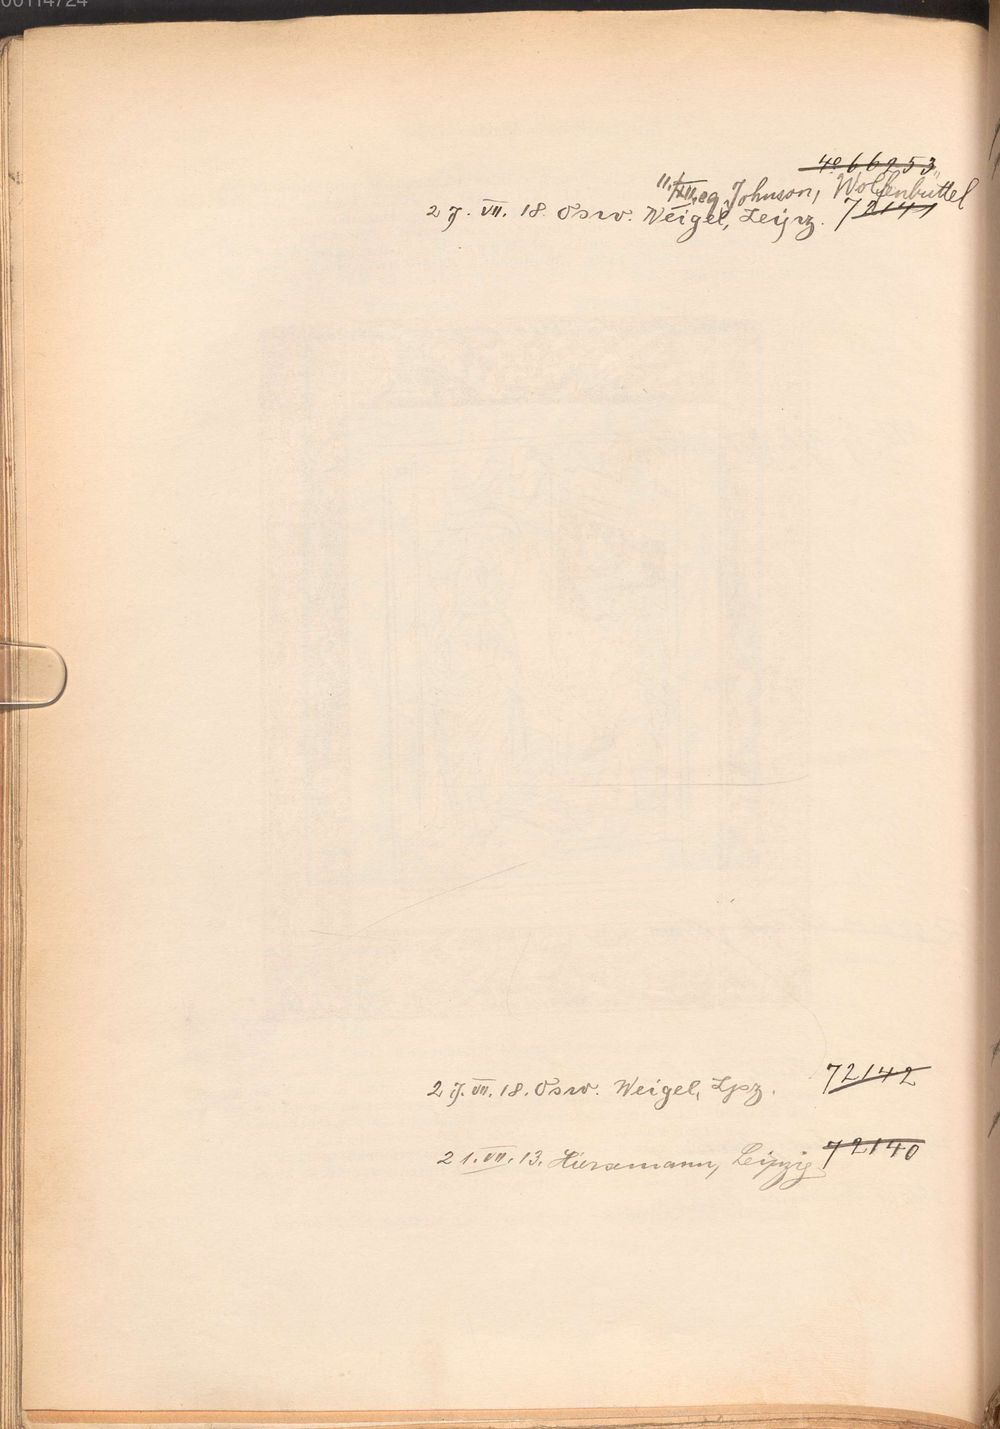 00114724
4° 66253
11./XII. eg. Johnson, Wolfenbüttel
27. VII. 18. Osw. Weigel, Leipz. 72141
27. VII. 18. Osw. Weigel, Lpz. 72142
21. VII. 13. Hiersemann, Leipzig 72140